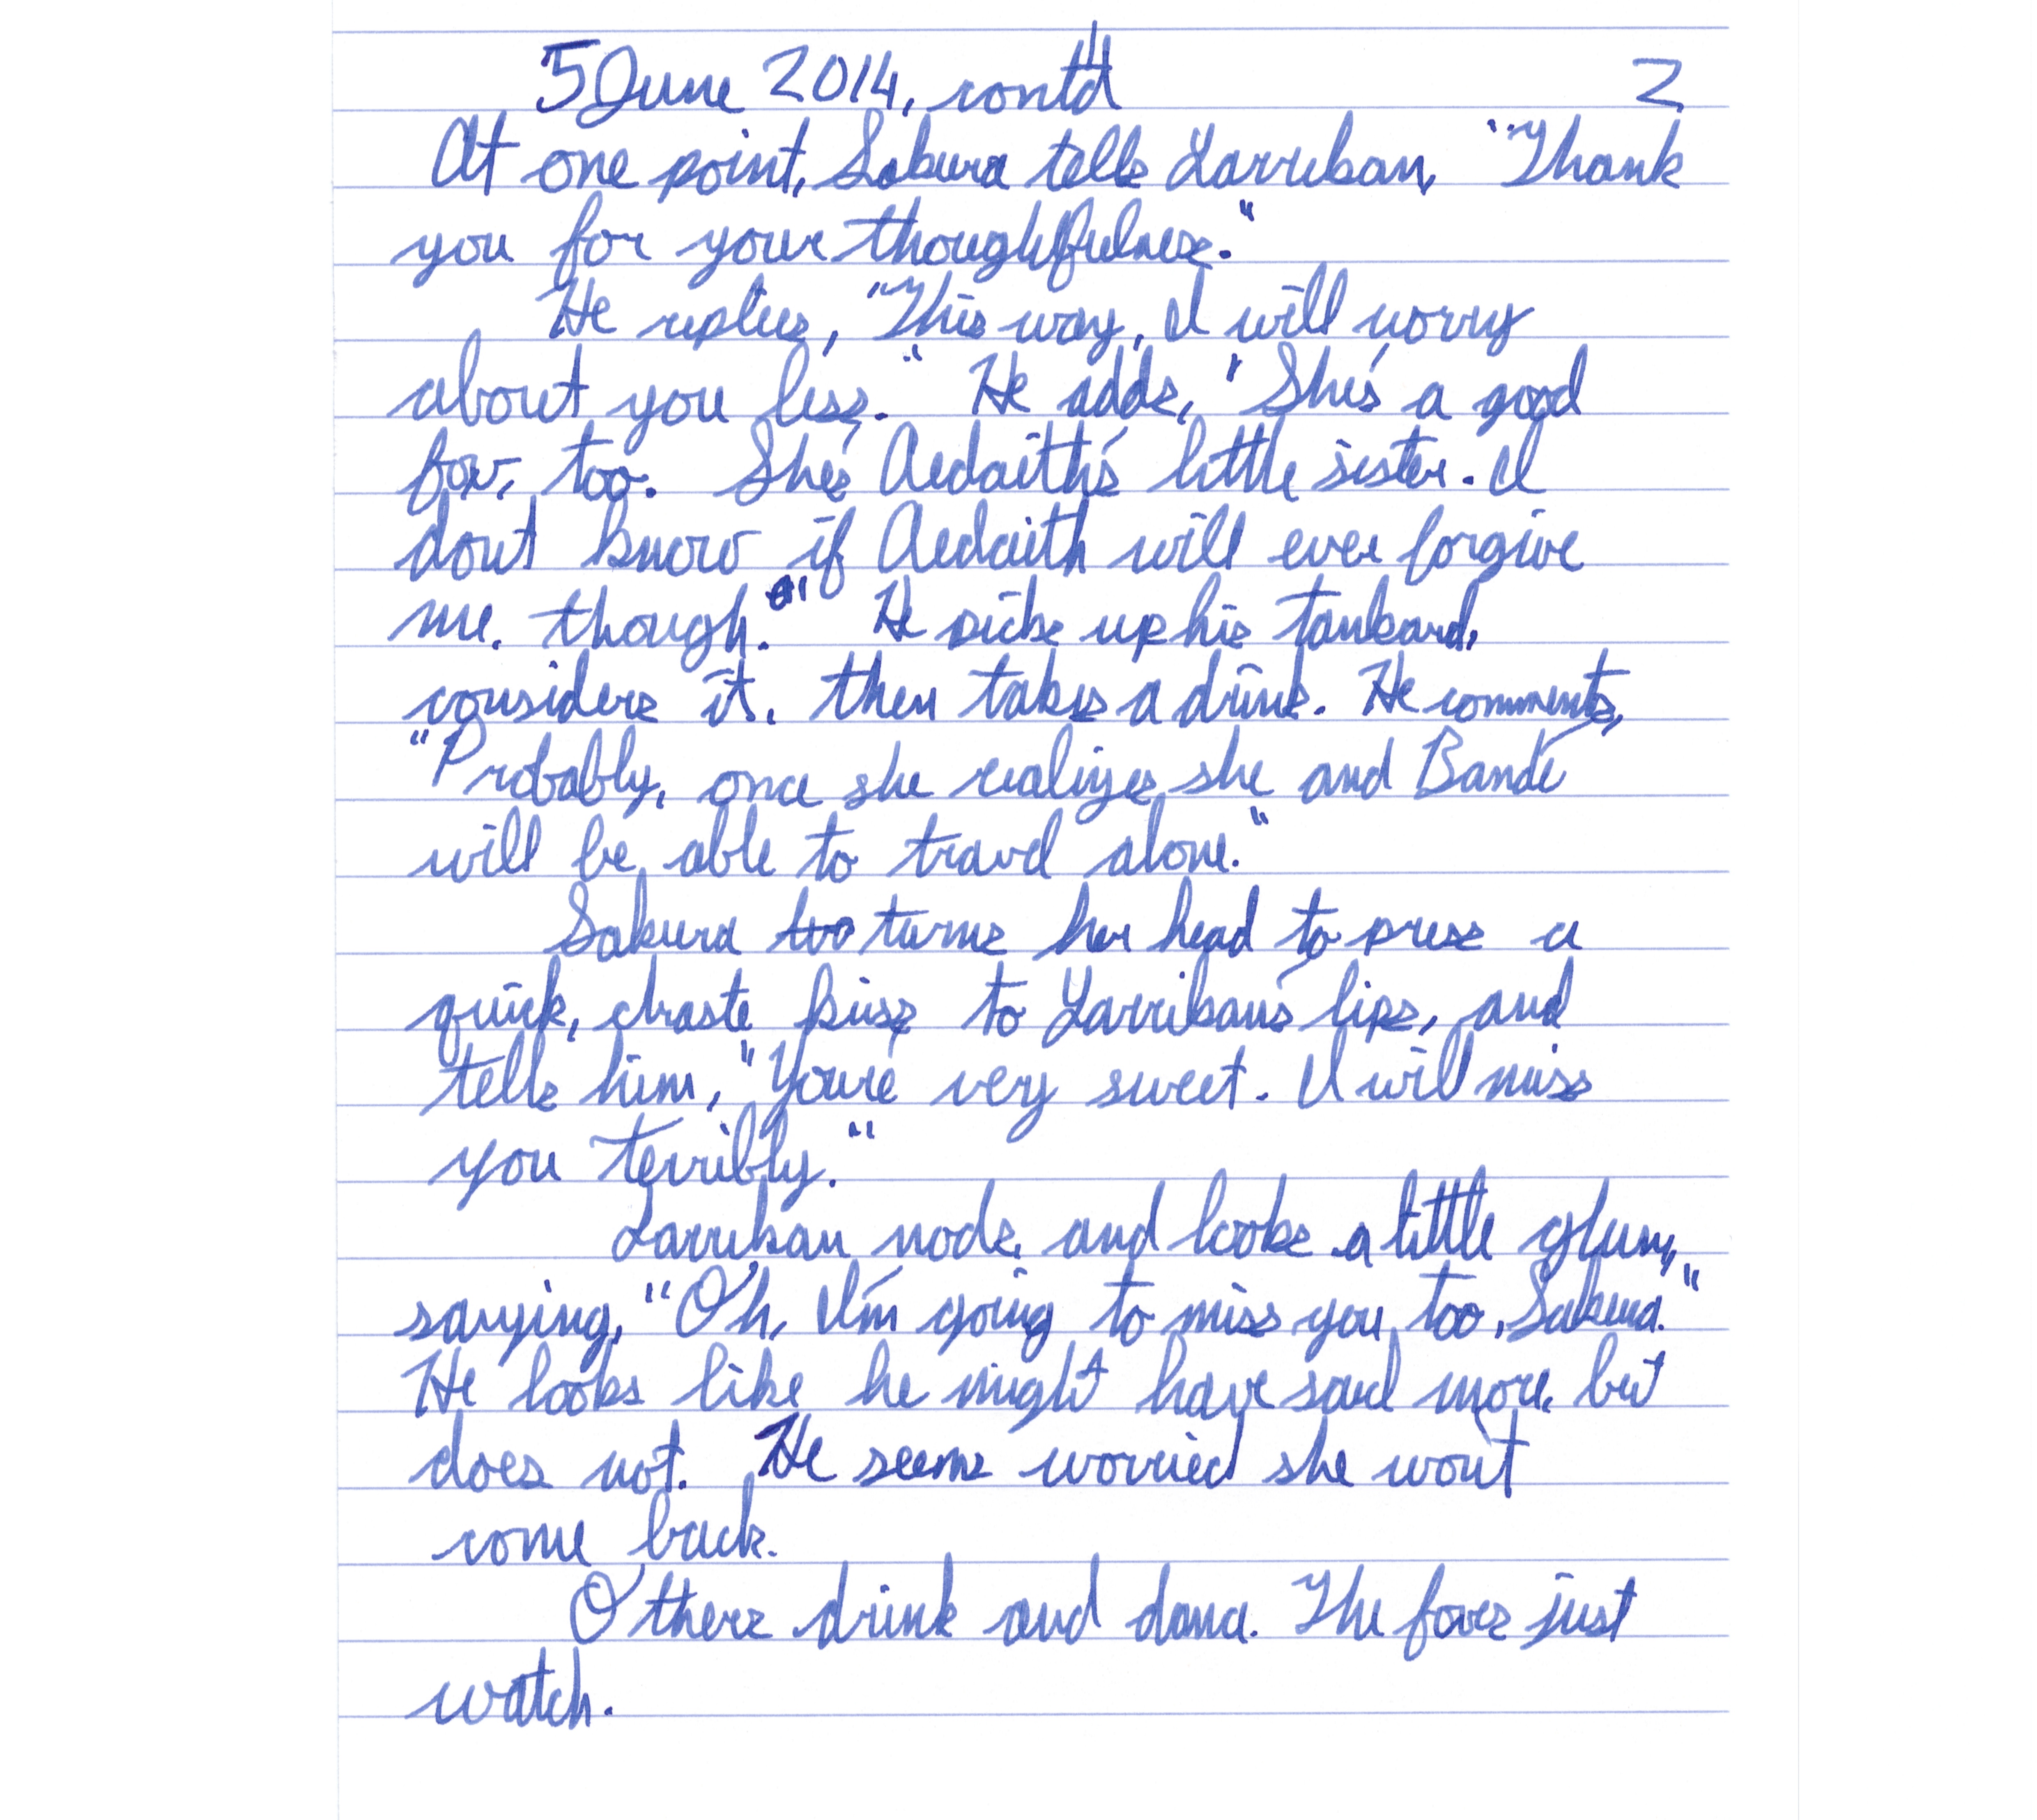 5 June 2014, cont'd 2
At one point, Sakura tells Larriban, "Thank
you for your thoughtfulness."
He replies, "This way, I will worry
about you less." He adds, "She's a good
fox, too. She's Aedaith's little sister. I
don't know if Aedaith will ever forgive
me, though." He picks up his tankard,
considers it, then takes a drink. He comments,
"Probably, once she realizes she and Bande
will be able to travel alone."
Sakura too turns her head to press a
quick, chaste kiss to Larriban's lips, and
tells him, "You're very sweet. I will miss
you terribly."
Larriban nods, and looks a little glum,
saying, "Oh, I'm going to miss you, too, Sakura."
He looks like he might have said more, but
does not. He seems worried she won't
come back.
Others drink and dance. The foxes just
watch.